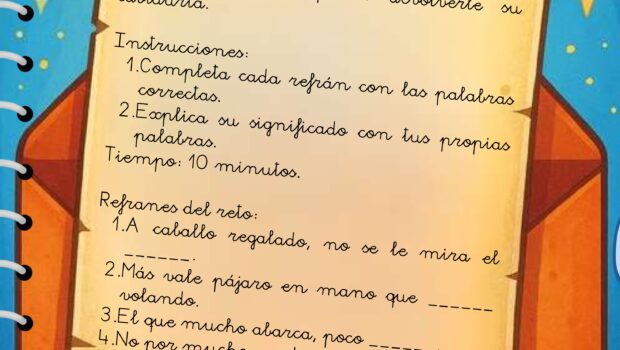 su
Instrucciones:
1.Completa cada refrán con las palabras
correctas.
2.Explica su significado con tus propias
palabras.
Tiempo: 10 minutos.
Refranes del reto:
1.A caballo regalado, no se le mira el
______.
2.Más vale pájaro en mano que ______
volando.
3.El que mucho abarca, poco ______
4.No por mucho